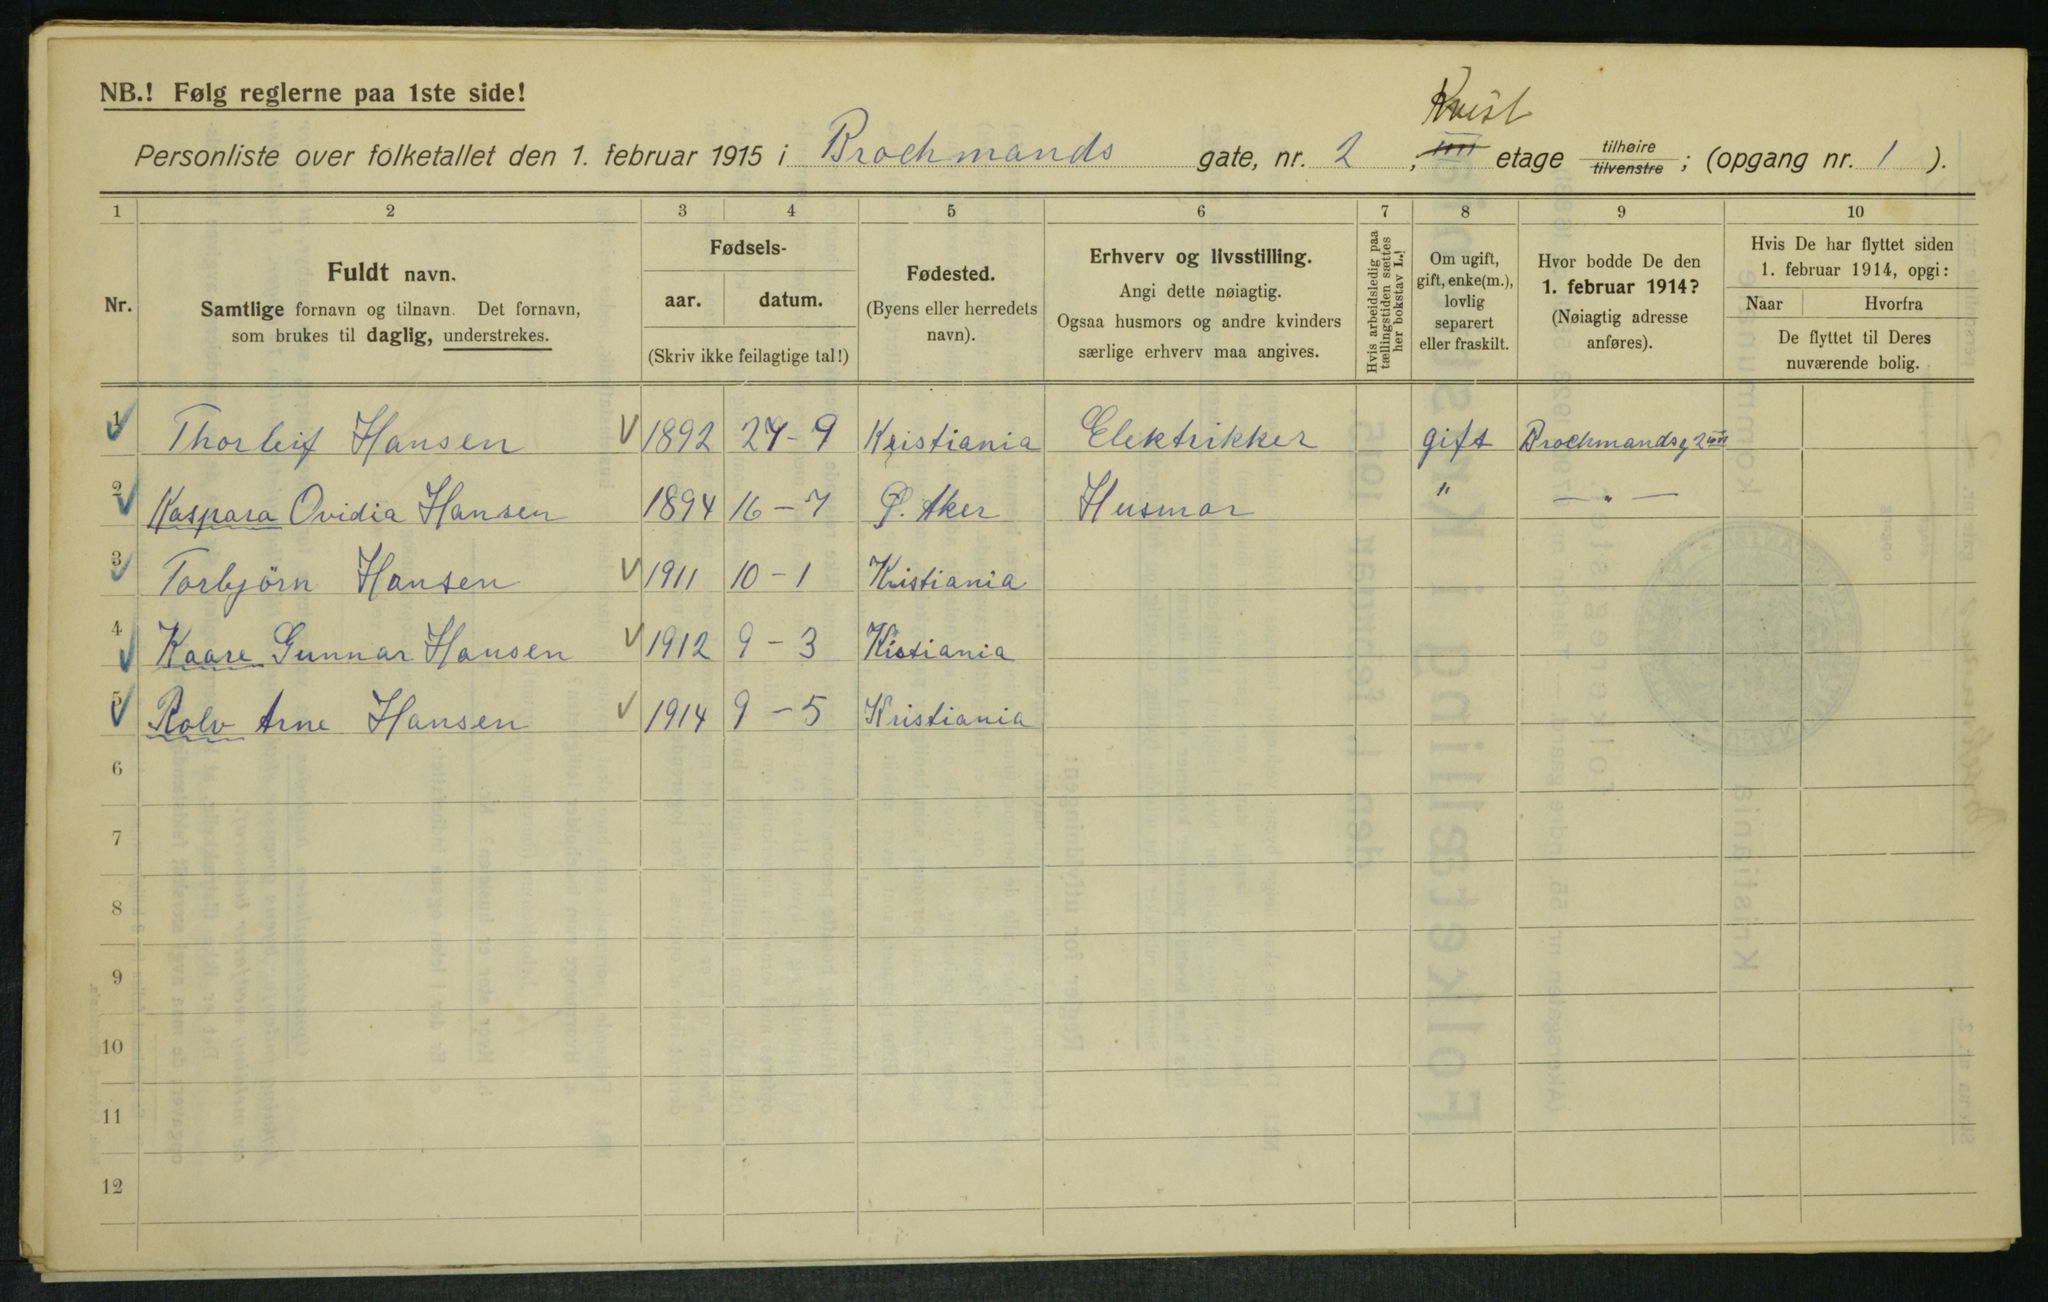 NB.! Følg reglerne paa 1ste side!
Kvist
Personliste over folketallet den 1. februar 1915 i Brochmands gate, nr. 2, IIII etage tilhøire tilvenstre; (opgang nr. 1).
1 2 3 4 5 6 7 8 9 10
Nr.
Fuldt navn.
Samtlige fornavn og tilnavn. Det fornavn,
som brukes til daglig, understrekes.
Fødsels-
aar. datum.
(Skriv ikke feilagtige tal!)
Fødested.
(Byens eller herredets
navn).
Erhverv og livsstilling.
Angi dette nøiagtig.
Ogsaa husmors og andre kvinders
særlige erhverv maa angives.
Hvis arbeidsledig paa
tællingstiden sættes
her bokstav L.!
Om ugift,
gift, enke(m.),
lovlig
separert
eller fraskilt.
Hvor bodde De den
1. februar 1914?
(Nøiagtig adresse
anføres).
Hvis De har flyttet siden
1. februar 1914, opgi:
Naar Hvorfra
De flyttet til Deres
nuværende bolig.
1 Thorleif Hansen 1892 27-9 Kristiania Elektrikker gift Brochmandsg 2 IIII
2 Kaspara Ovidia Hansen 1894 16-7 Ø. Aker Husmor " — " —
3 Torbjörn Hansen 1911 10-1 Kristiania
4 Kaare Gunnar Hansen 1912 9-3 Kistiania
5 Rolv Arne Hansen 1914 9-5 Kristiania
6
7
8
9
10
11
12